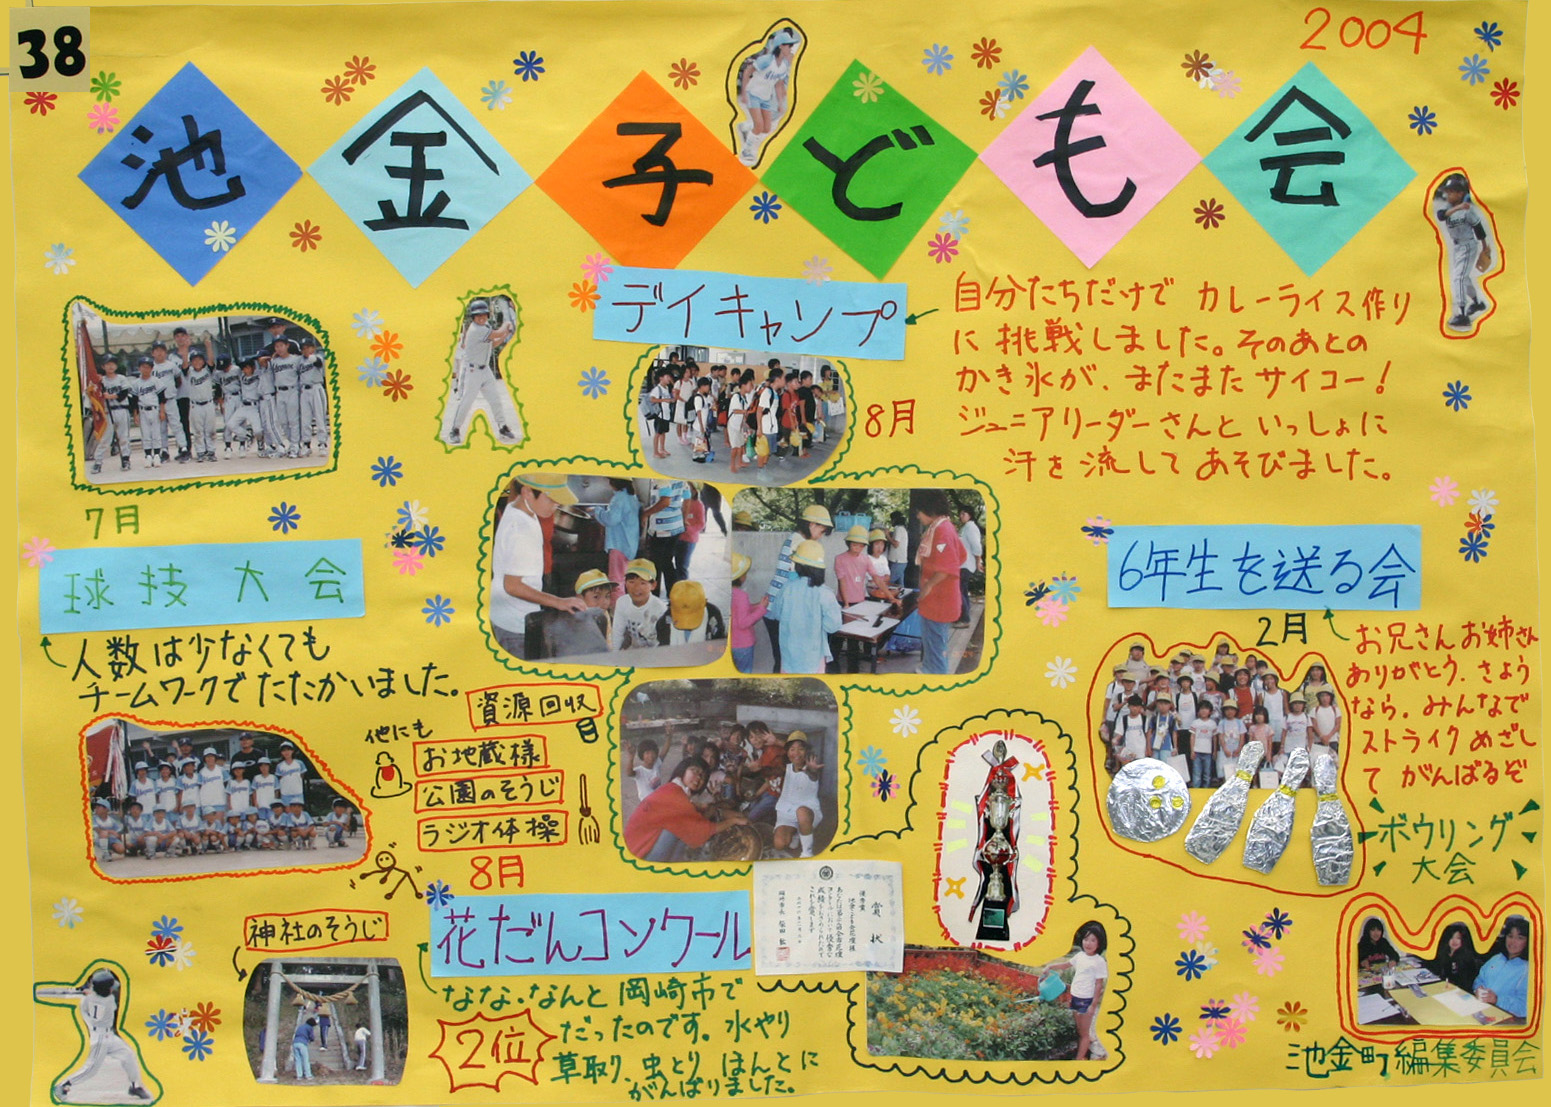 38
2004
池金子ども会
デイキャンプ
8月
自分たちだけで カレーライス作り
に 挑戦しました。そのあとの
かき氷が、またまた サイコー!
ジュニアリーダーさんと いっしょに
汗を 流して あそびました。
7月
球技大会
人数は少なくても
チームワークでたたかいました。
他にも
資源回収
お地蔵様
公園のそうじ
ラジオ体操
神社のそうじ
8月
花だんコンクール
なな、なんと 岡崎市で
2位
だったのです。水やり
草取り 虫とり ほんとに
がんばりました。
賞状
6年生を送る会
2月
お兄さん お姉さん
ありがとう。さよう
なら。みんなで
ストライクめざし
て がんばるぞ
ボウリング
大会
池金町編集委員会